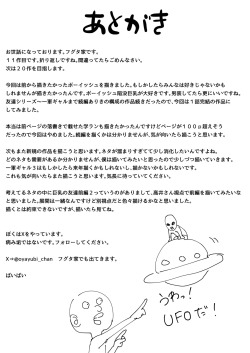 あとがき
お世話になっております。フグタ家です。
11作目です。折り返しですね。間違ってたらごめんなさい。
次は20作を目指します。
今回は前から描きたかったボーイッシュを描きました。もしかしたらみんなは好きじゃないかも
しれませんが描きたかったんです。ボーイッシュ陥没巨乳が大好きです。男装してたら更にいいですね。
友達シリーズ→一軍ギャルまで続編ありきの構成の作品続きだったので、今回は1話完結の作品に
してみました。
本当は前ページの落書きで載せた学ランも描きたかったんですけどページが100p超えそう
だったので今回はやめました。続編を描くかは分かりませんが、気が向いたら描こうと思います。
次もまた新規の作品を描こうと思います。ネタが溜まりすぎてて少し消化したいんですよね。
どのネタも需要があるか分かりませんが、僕は描いてみたいと思ったので少しづつ描いていきます。
一軍ギャル3はもしかしたら来年描くかもしれないし、描かないかもしれないです。
これも気が向いたらまた描こうと思います。気長に待っていてください。
考えてるネタの中に巨乳の友達前編2っていうのがありまして、高井さん視点で前編を描いてみたいな
と思いました。展開は一緒なんですけど別視点だと色々描けるかなと思いました。
描くとは約束できないですが、描いたら見てね。
ぼくはXをやっています。
病み垢ではないです。フォローしてください。
X⇒@osayubi_chan　フグタ家でも出てきます。
ばいばい
うわっ!
UFOだ!